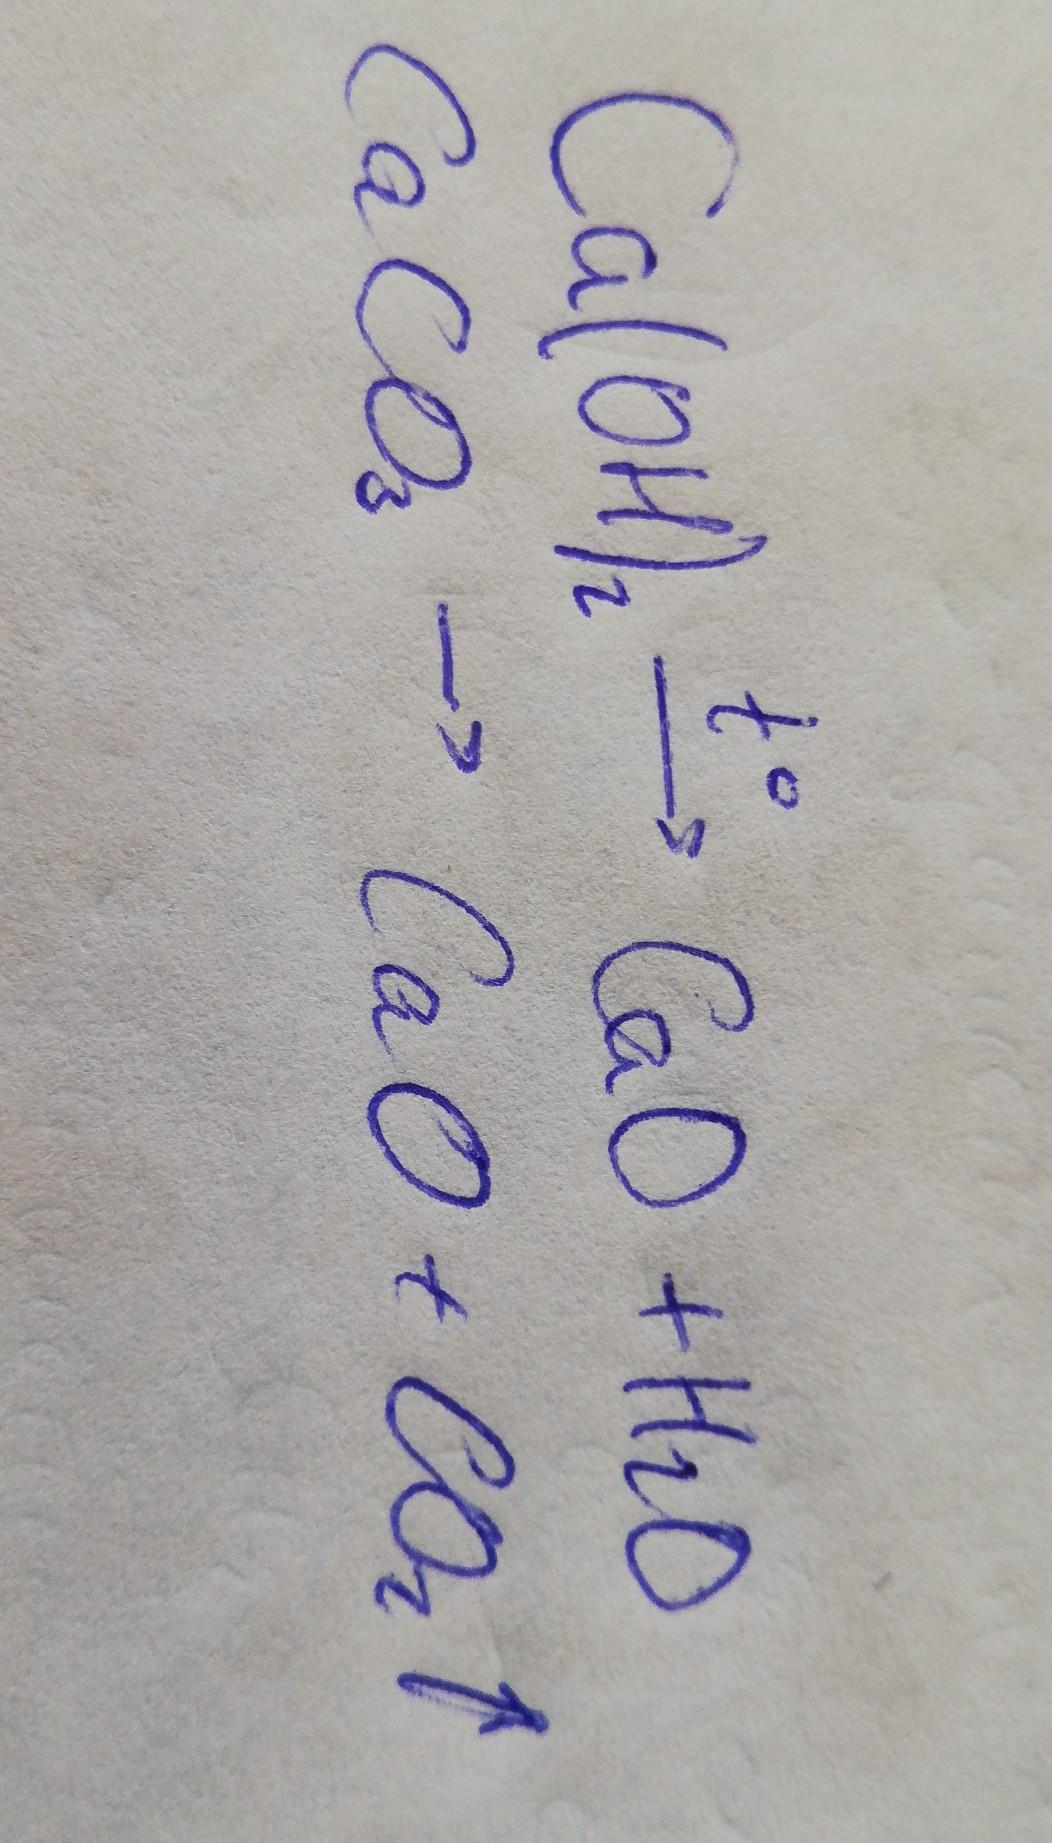 Ca(OH)₂ →t° CaO + H₂O
CaCO₃ → CaO + CO₂ ↑